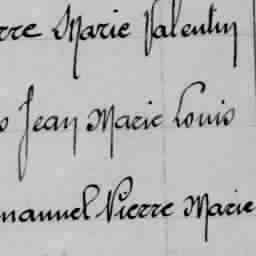 rre Marie Valentin
o Jean Marie Louis
manuel Pierre Marie